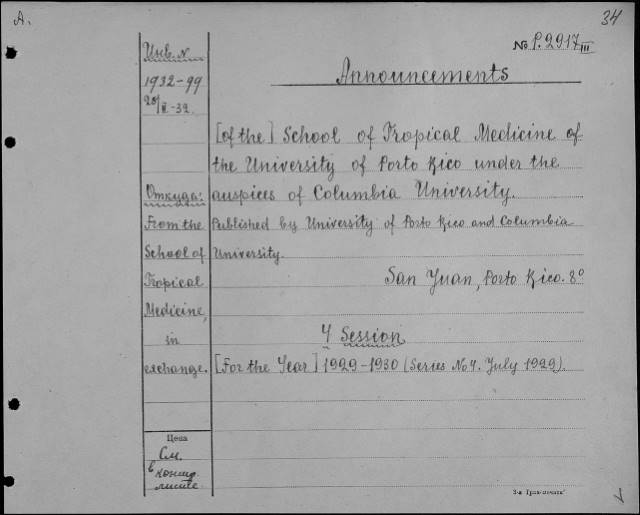 A.
34
No P.2917 III
Инв. N
1932-99
Announcements
[of the] School of Tropical Medicine of
the University of Porto Rico under the
Откуда:
auspices of Columbia University.
From the
Published by University of Porto Rico and Columbia
School of
University.
Tropical
San Yuan, Porto Rico. 8°
Medicine,
in
4 Session
exchange.
[For the Year] 1929-1930 (Series No 4. July 1929).
Цена
См.
в
конце
листе